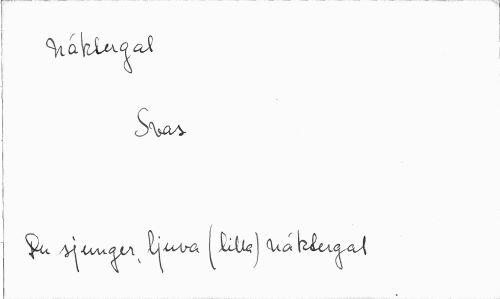 Näktergal
Svar
Du sjunger, ljuva (lilla) näktergal